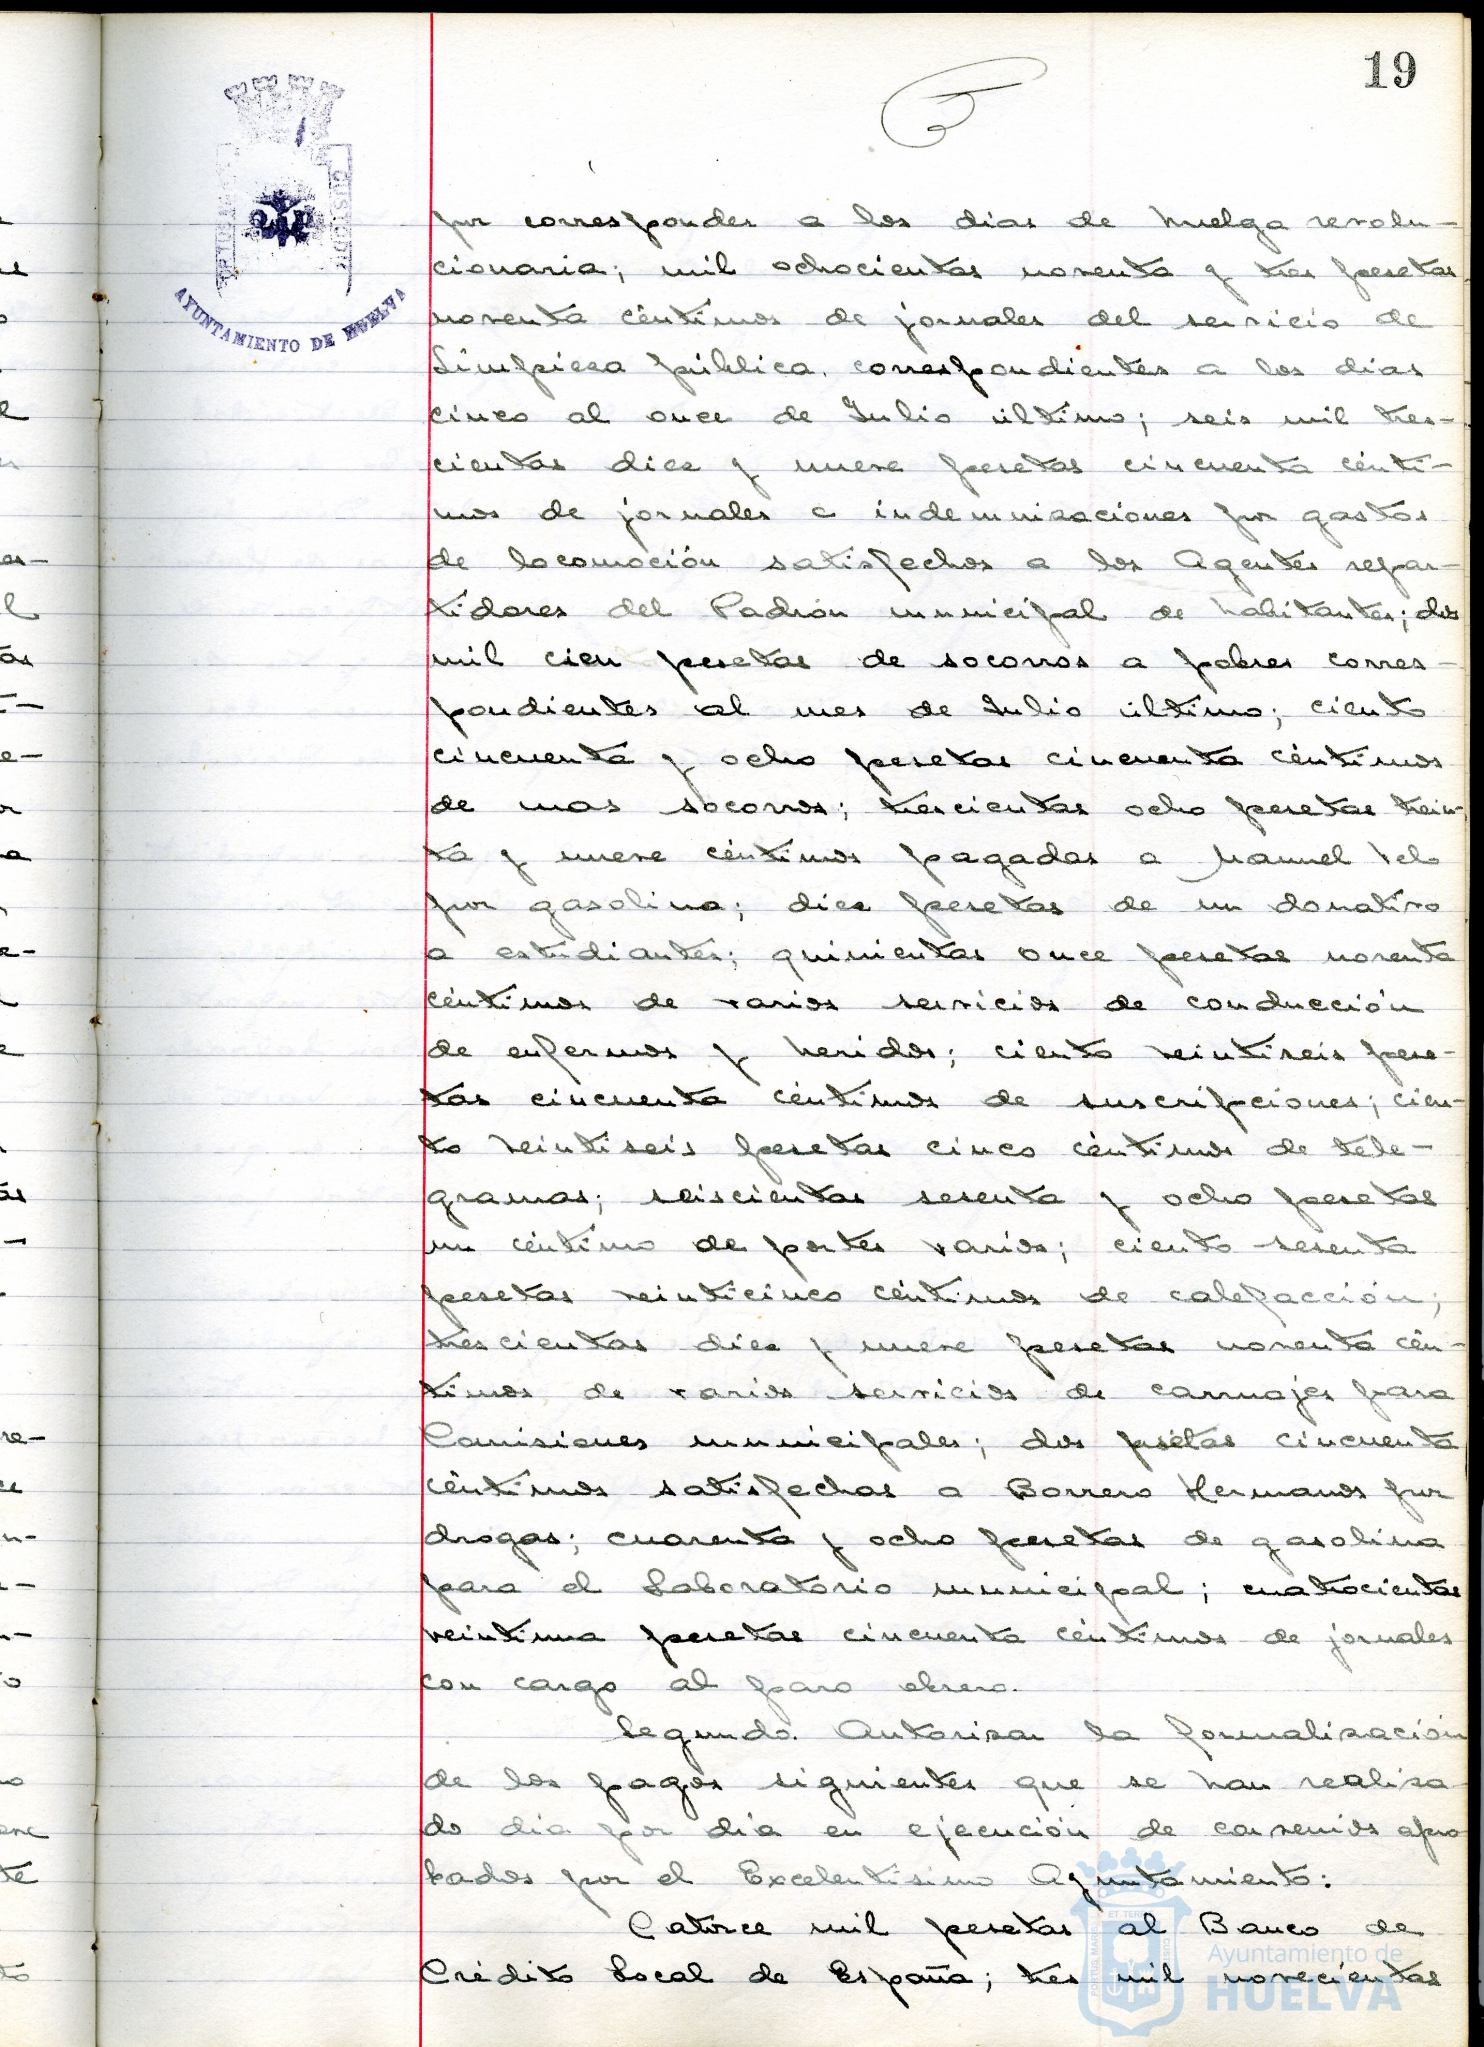 19
AYUNTAMIENTO DE HUELVA
por corresponder a los dias de huelga revolu-
cionaria; mil ochocientas noventa y tres pesetas
noventa céntimos de jornales del servicio de
Limpieza pública, correspondientes a los dias
cinco al once de Julio último; seis mil tres-
cientas diez y nueve pesetas cincuenta cénti-
mos de jornales e indemnizaciones por gastos
de locomoción satisfechos a los Agentes repar-
tidores del Padrón municipal de habitantes; dos
mil cien pesetas de socorros a pobres corres-
pondientes al mes de Julio último; ciento
cincuenta y ocho pesetas cincuenta céntimos
de mas socorros; trescientas ocho pesetas trein-
ta y nueve céntimos pagadas a Manuel Velo
por gasolina; diez pesetas de un donativo
a estudiantes; quinientas once pesetas noventa
céntimos de varios servicios de conducción
de enfermos y heridos; ciento veintiseis pese-
tas cincuenta céntimos de suscripciones; cien-
to veintiseis pesetas cinco céntimos de tele-
gramas; seiscientas sesenta y ocho pesetas
un céntimo de portes varios; ciento sesenta
pesetas veinticinco céntimos de calefacción;
trescientas diez y nueve pesetas noventa cén-
timos de varios servicios de carruajes para
Comisiones municipales; dos pesetas cincuenta
céntimos satisfechas a Borrero Hermanos por
drogas; cuarenta y ocho pesetas de gasolina
para el Laboratorio municipal; cuatrocientas
veintiuna pesetas cincuenta céntimos de jornales
con cargo al paro obrero.
Segundo. Autorizar la formalización
de los pagos siguientes que se han realiza-
do dia por dia en ejecución de convenios apro
bados por el Excelentísimo Ayuntamiento:
Catorce mil pesetas al Banco de
Crédito Local de España; tres mil novecientas
Ayuntamiento de
HUELVA